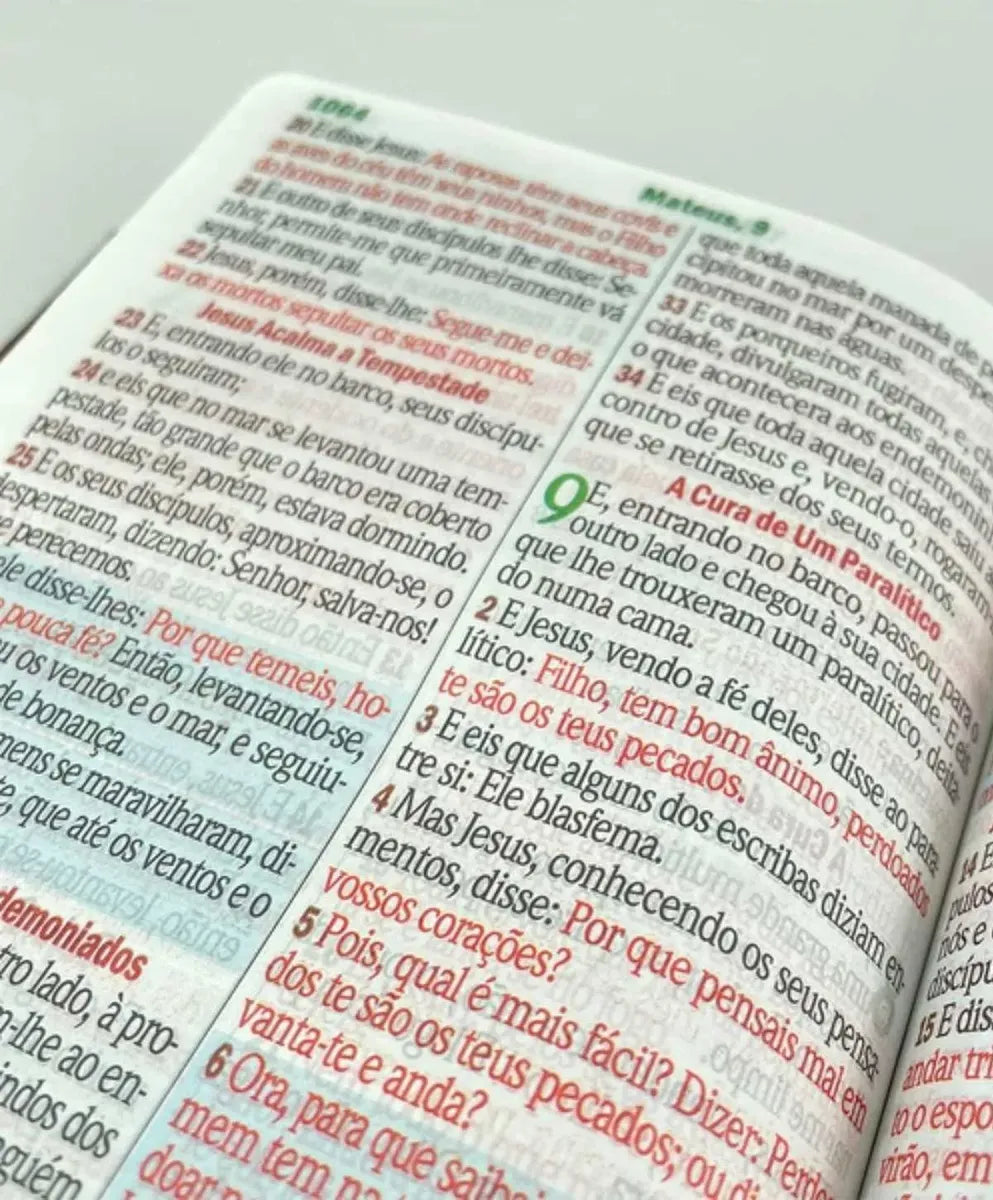 1064
Mateus, 9
20 E disse Jesus: As raposas têm seus covis e
as aves do céu têm seus ninhos, mas o Filho
do homem não tem onde reclinar a cabeça.
21 E outro de seus discípulos lhe disse: Se-
nhor, permite-me que primeiramente vá
sepultar meu pai.
22 Jesus, porém, disse-lhe: Segue-me e dei-
xa os mortos sepultar os seus mortos.
Jesus Acalma a Tempestade
23 E, entrando ele no barco, seus discípu-
los o seguiram;
24 e eis que no mar se levantou uma tem-
pestade, tão grande que o barco era coberto
pelas ondas; ele, porém, estava dormindo.
25 E os seus discípulos, aproximando-se, o
despertaram, dizendo: Senhor, salva-nos!
perecemos.
ele disse-lhes: Por que temeis, ho-
pouca fé? Então, levantando-se,
os ventos e o mar, e seguiu-
de bonança.
mens se maravilharam, di-
que até os ventos e o
demoniados
tro lado, à pro-
-lhe ao en-
indos dos
guém
que toda aquela manada de
cipitou no mar por um despe
morreram nas águas.
33 E os porqueiros fugiram e,
cidade, divulgaram todas aquelas
o que acontecera aos endemonin
34 E eis que toda aquela cidade saiu
contro de Jesus e, vendo-o, rogaram
que se retirasse dos seus termos.
A Cura de Um Paralítico
9 E, entrando no barco, passou para o
outro lado e chegou à sua cidade. E eis
que lhe trouxeram um paralítico, deita-
do numa cama.
2 E Jesus, vendo a fé deles, disse ao para
lítico: Filho, tem bom ânimo, perdoados
te são os teus pecados.
3 E eis que alguns dos escribas diziam en-
tre si: Ele blasfema.
4 Mas Jesus, conhecendo os seus pensa-
mentos, disse: Por que pensais mal em
vossos corações?
5 Pois, qual é mais fácil? Dizer: Perdo
dos te são os teus pecados; ou di
vanta-te e anda?
6 Ora, para que saiba
mem tem na
doar
14 E
pulos
nós e
discípu
15 E dis
andar tri
to o espo
virão, em